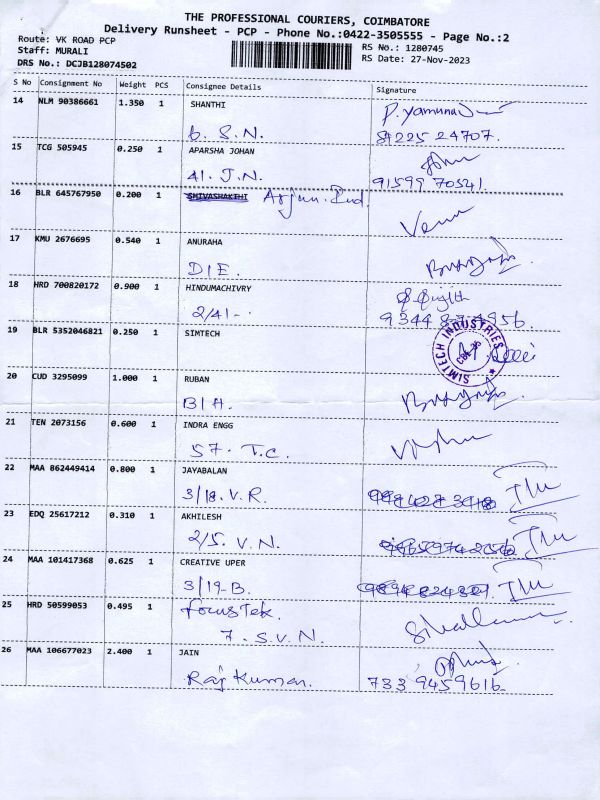 THE PROFESSIONAL COURIERS, COIMBATORE
Delivery Runsheet - PCP - Phone No.:0422-3505555 - Page No.:2
Route: VK ROAD PCP
Staff: MURALI
DRS No.: DCJB128074502
RS No.: 1280745
RS Date: 27-Nov-2023
S No Consignment No Weight PCS Consignee Details Signature
14 NLM 90386661 1.350 1 SHANTHI P. Yamuna
6. S.N. 84225 24707.
15 TCG 505945 0.250 1 APARSHA JOHAN
41. J.N. 91599 70541.
16 BLR 645767950 0.200 1 SHIVASHAKTHI Arjun. Ind.
17 KMU 2676695 0.540 1 ANURAHA
D/E.
18 HRD 700820172 0.900 1 HINDUMACHIVRY
2/41-
19 BLR 5352046821 0.250 1 SIMTECH
SIMTECH INDUSTRIES
20 CUD 3295099 1.000 1 RUBAN
B/A.
21 TEN 2073156 0.600 1 INDRA ENGG
57. T.C.
22 MAA 862449414 0.800 1 JAYABALAN
3/18. V.R.
23 EDQ 25617212 0.310 1 AKHILESH
2/5. V.N.
24 MAA 101417368 0.625 1 CREATIVE UPER
3/19-B.
25 HRD 50599053 0.495 1 focusTek.
7. S.V.N.
26 MAA 106677023 2.400 1 JAIN
Raj Kumar. 733 9459616